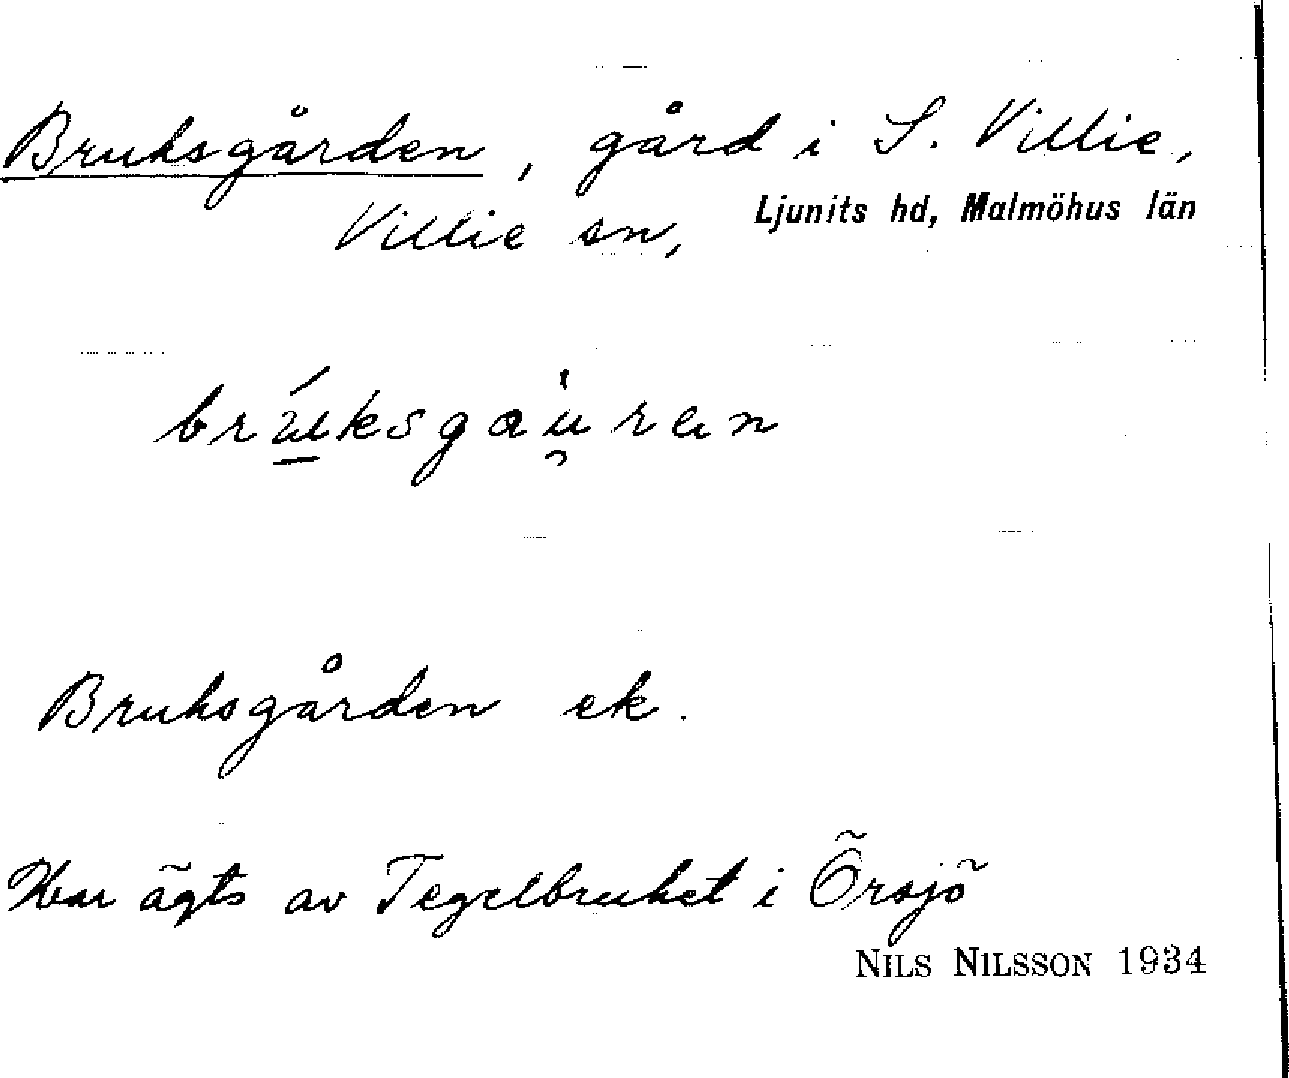 Bruksgården, gård i S. Villie,
Villie sn, Ljunits hd, Malmöhus län
Bruksgården ek.
Har ägts av Tegelbruket i Örsjö
NILS NILSSON 1934